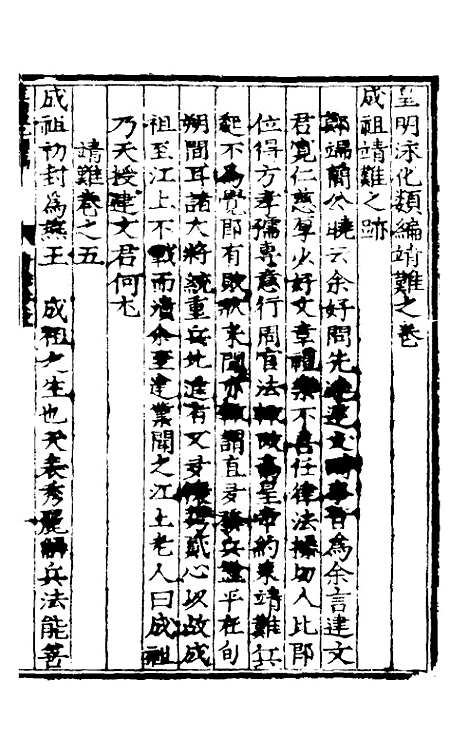 皇明泳化類編靖難之卷
成祖靖難之跡
鄭端簡公曉云余好問先達建文時事皆為余言建文
君寬仁慈厚少好文章禮樂不喜任律法操切人比即
位得方孝孺專意行周官法度改為皇帝約束靖難兵
起不為覺即有敗狀來聞亦謂直麥兵盡平在旬
朔間耳諸大將統重兵北進有文懷貳心以故成
祖至江上不戰而潰余至建業聞之江上老人曰成祖
乃天授建文君何尤
靖難卷之五
成祖初封為燕王 成祖之生也天表秀麗嗣兵法能善